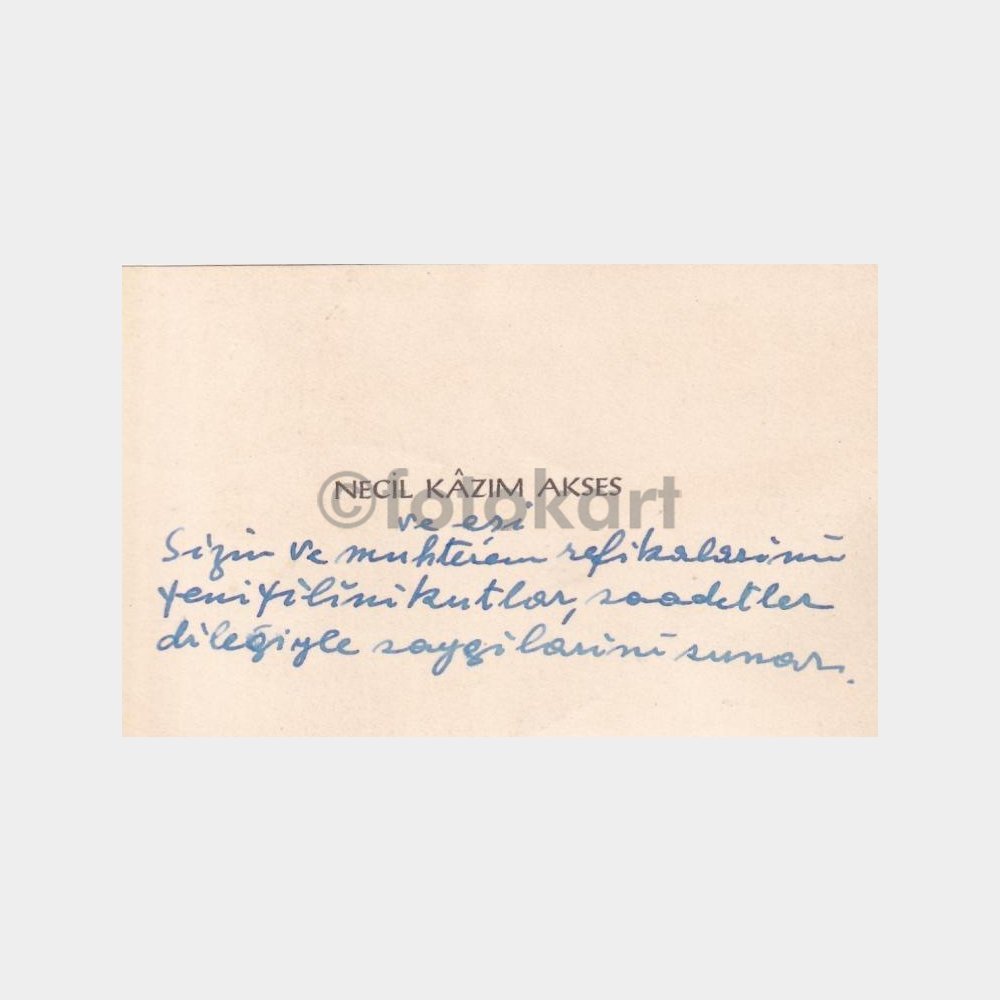 NECİL KÂZIM AKSES
©fotokart
ve eşi
Sizin ve muhterem refikalarının
yeni yılını kutlar, saadetler
dileğiyle saygılarını sunar.